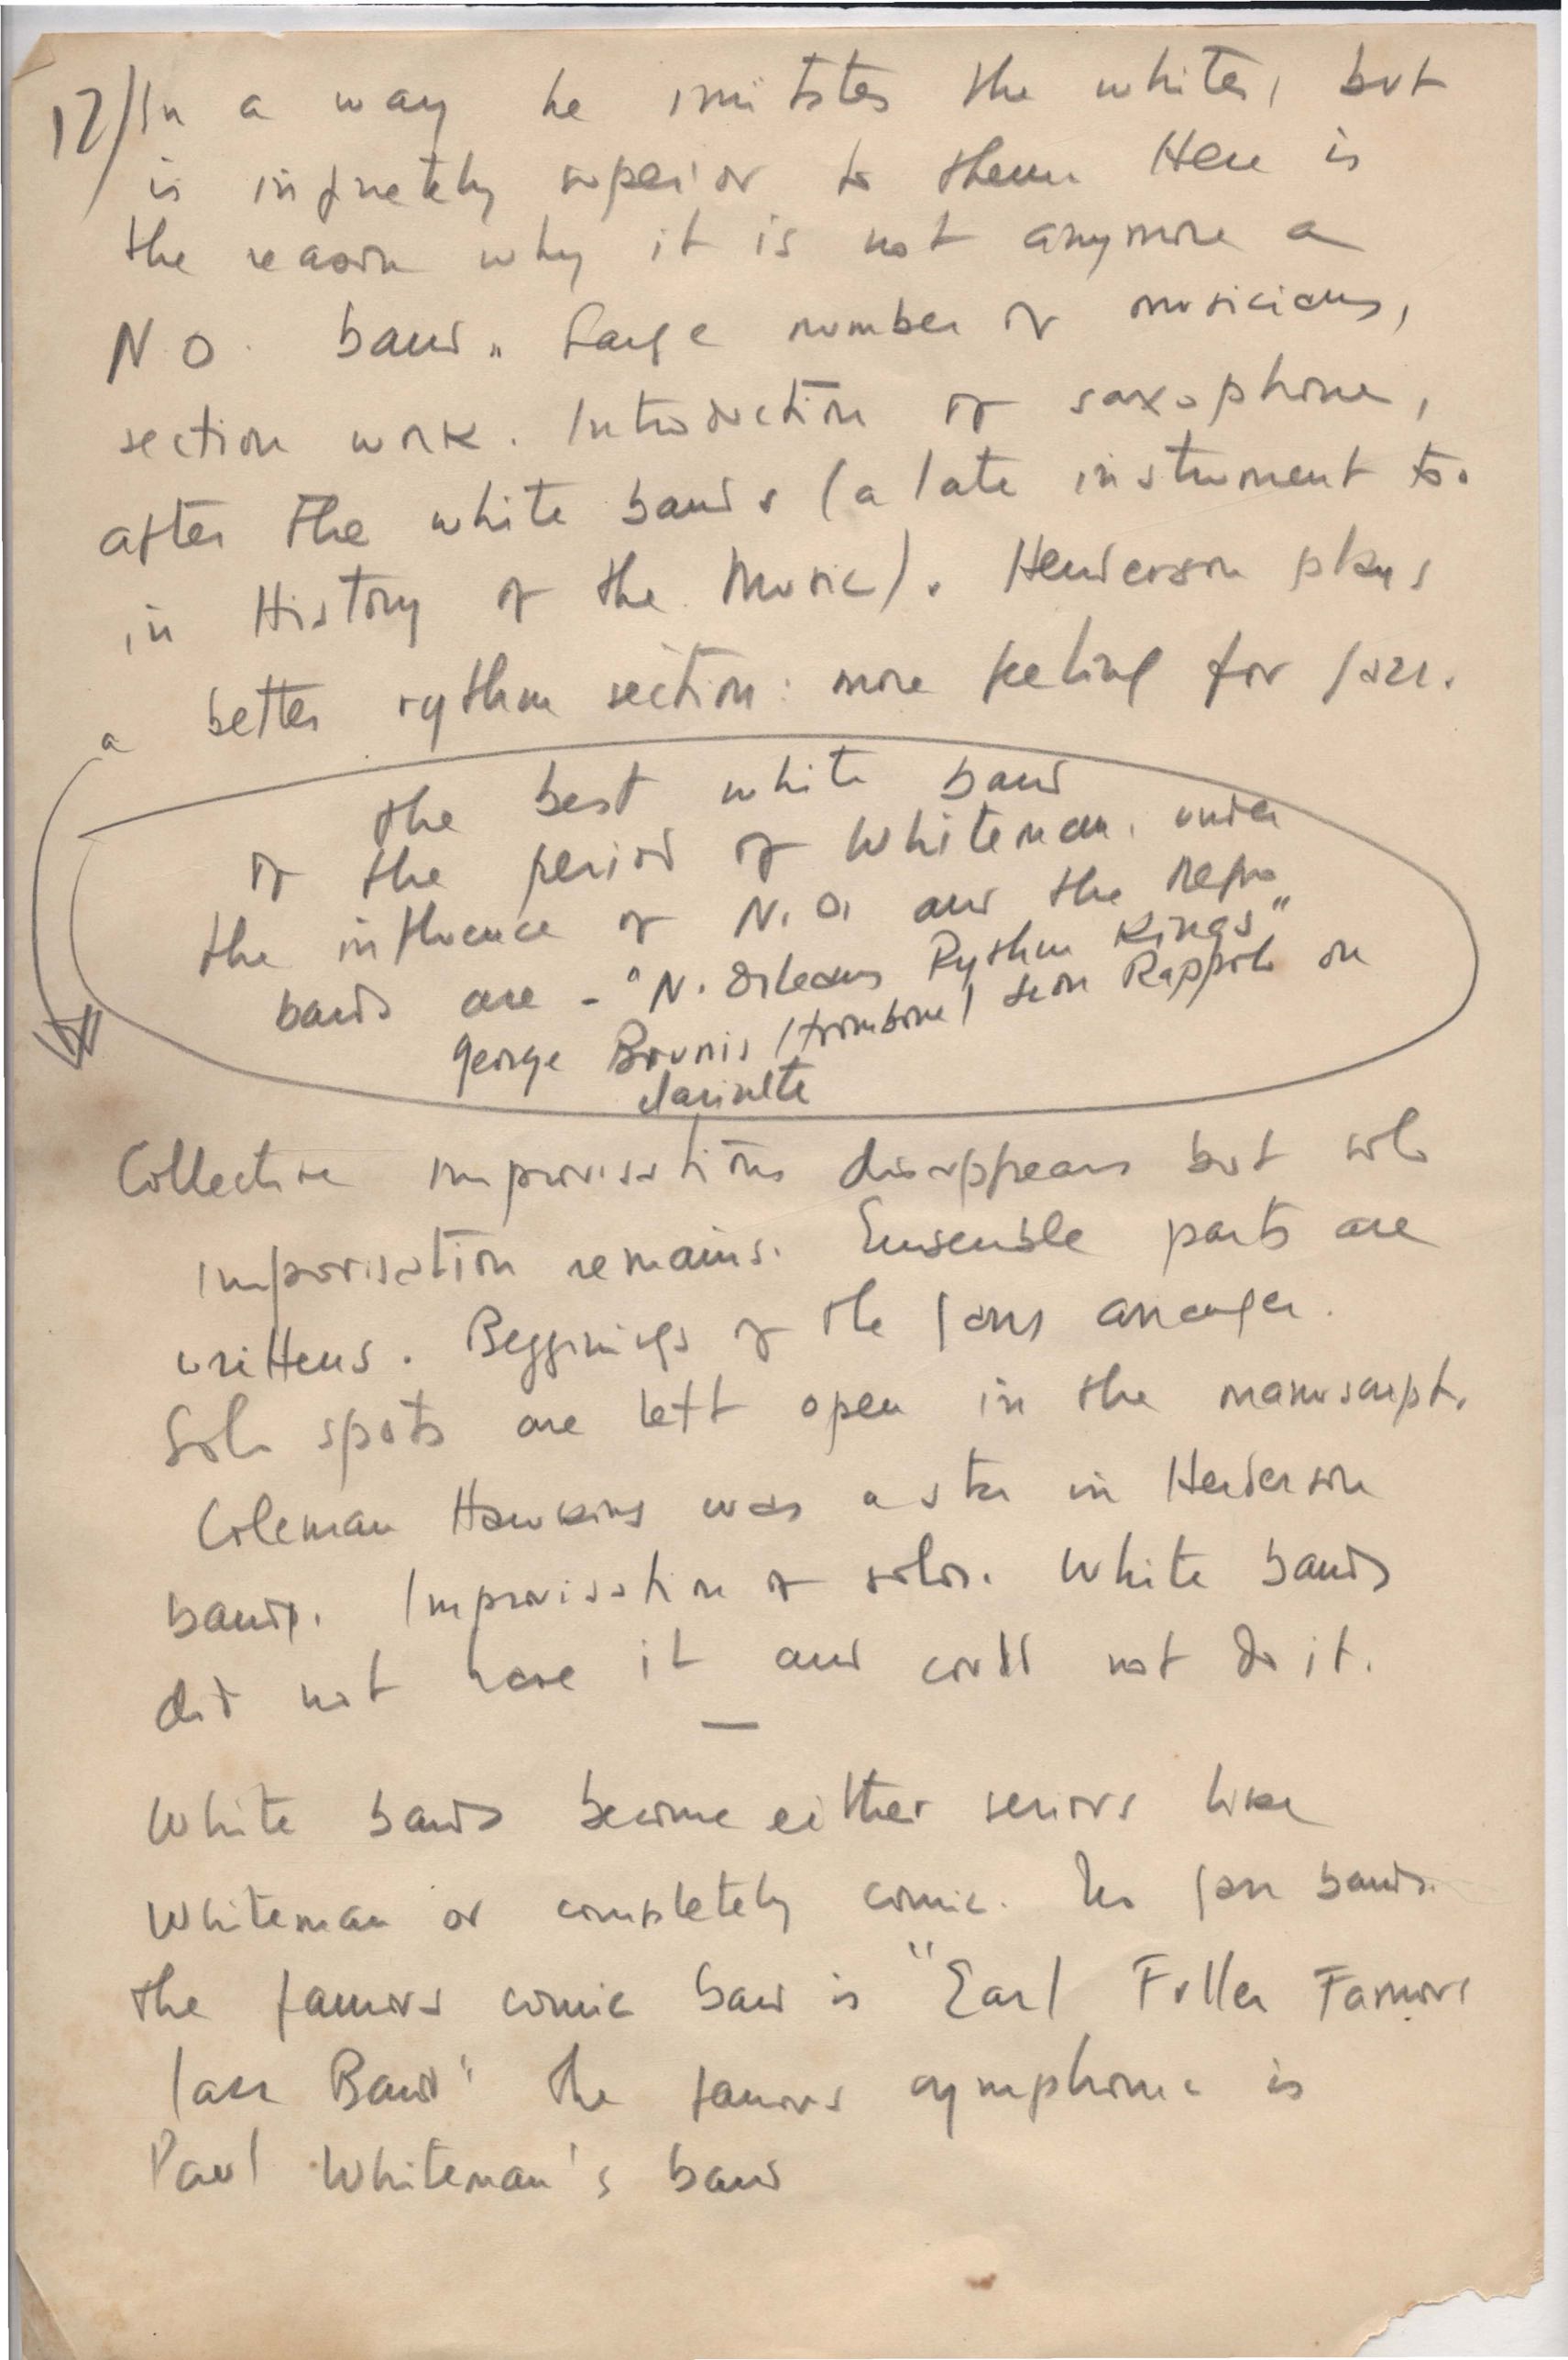 12/ In a way he imitates the whites, but
is infinetely superior to them Here is
the reason why it is not anymore a
N O. band. Large number of musicians,
section work. Introduction of saxophone,
after the white bands (a late instrument to.
in History of the Music). Henderson plays
a better rythm section: more feeling for jazz.
the best white band
of the period of Whiteman, under
the influence of N.O. and the negro
bands are - "N. Orleans Rythm Kings"
george Brunis (trombone) Leon Rappolo on
clarinette
Collective improvisations disappears but solo
improvisation remains. Ensemble parts are
writtens. Begginings of the jazz arranger.
Solo spots are left open in the manuscript.
Coleman Hawkins was a star in Henderson
bands. Improvisation of solos. White bands
did not have it and could not do it.
—
White bands become either serious like
Whiteman or completely comic. No jazz bands.
the famous comic band is "Earl Fuller Famous
Jazz Band" the famous symphonic is
Paul Whiteman's band